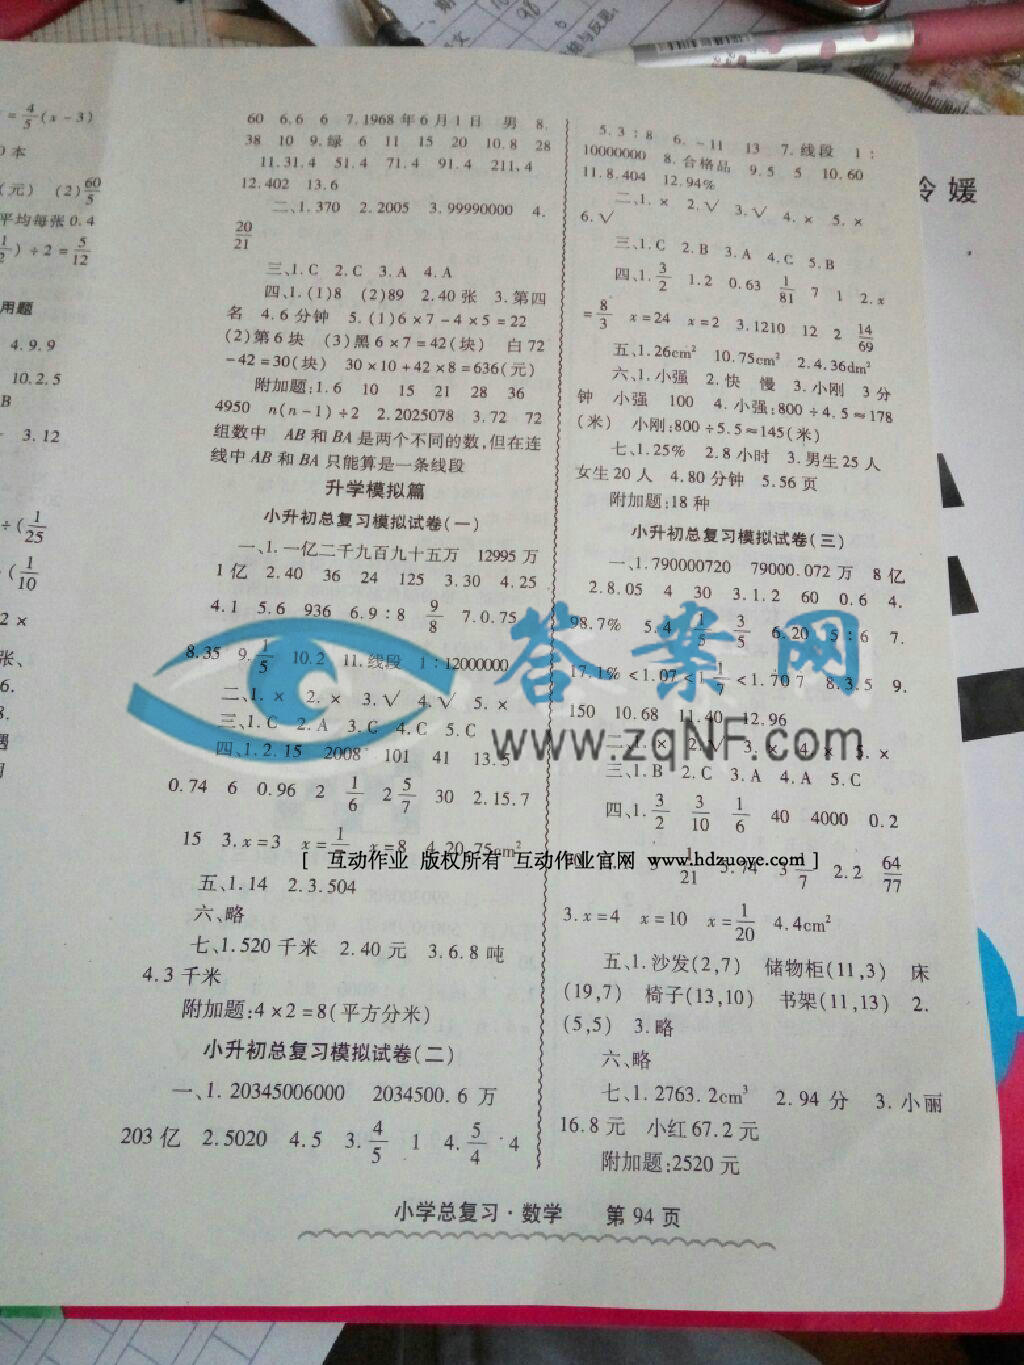 = 4/5 (x-3)
0本
(元) (2) 60/5
平均每张0.4
1/2 )÷2= 5/12
用题
4.9.9
10.2.5
B
3.12
÷( 1/25
( 1/10
2×
张、
6.
8.
60 6.6 6 7.1968年6月1日 男 8.
38 10 9.绿 6 11 15 20 10.8 28
11.31.4 51.4 71.4 91.4 211.4
12.402 13.6
二、1.370 2.2005 3.99990000 4.
20/21
三、1.C 2.C 3.A 4.A
四、1.(1)8 (2)89 2.40张 3.第四
名 4.6分钟 5.(1)6×7-4×5=22
(2)第6块 (3)黑6×7=42(块) 白72
-42=30(块) 30×10+42×8=636(元)
附加题:1.6 10 15 21 28 36
4950 n(n-1)÷2 2.2025078 3.72 72
组数中 AB和BA是两个不同的数,但在连
线中AB和BA只能算是一条线段
升学模拟篇
小升初总复习模拟试卷(一)
一、1.一亿二千九百九十五万 12995万
1亿 2.40 36 24 125 3.30 4.25
4.1 5.6 936 6.9:8 9/8 7.0.75
8.35 9. 1/5 10.2 11.线段 1:12000000
二、1.× 2.× 3.√ 4.√ 5.×
三、1.C 2.A 3.C 4.C 5.C
四、1.2.15 2008 101 41 13.5
0.74 6 0.96 2 1/6 2 5/7 30 2.15.7
15 3.x=3 x= x=8 4.20.75cm²
五、1.14 2.3.504
六、略
七、1.520千米 2.40元 3.6.8吨
4.3千米
附加题:4×2=8(平方分米)
小升初总复习模拟试卷(二)
一、1.20345006000 2034500.6万
203亿 2.5020 4.5 3. 4/5 1 4. 5/4 4
5.3:8 6.-11 13 7.线段 1:
10000000 8.合格品 9.5 5 10.60
11.8.404 12.94%
二、1.× 2.√ 3.√ 4.× 5.×
6.√
三、1.C 2.B 3.A 4.C 5.B
四、1. 3/2 1.2 0.63 1/81 7 1 2.x
= 8/3 x=24 x=2 3.1210 12 2 14/69
五、1.26cm² 10.75cm² 2.4.36dm²
六、1.小强 2.快 慢 3.小刚 3分
钟 小强 100 4.小强:800÷4.5≈178
(米) 小刚:800÷5.5≈145(米)
七、1.25% 2.8小时 3.男生25人
女生20人 4.80分钟 5.56页
附加题:18种
小升初总复习模拟试卷(三)
一、1.790000720 79000.072万 8亿
2.8.05 4 30 3.1.2 60 0.6 4.
98.7% 5.4 1/5 3/5 6.20 5:6 7.
17.1%<1.07<1 1/7 <1.707 8.3.5 9.
150 10.68 11.40 12.96
二、1.× 2.√ 3.× 4.× 5.×
三、1.B 2.C 3.A 4.A 5.C
四、1. 3/2 3/10 1/6 40 4000 0.2
1/21 5.74 3 /7 2.2 64/77
3.x=4 x=10 x= 1/20 4.4cm²
五、1.沙发(2,7) 储物柜(11,3) 床
(19,7) 椅子(13,10) 书架(11,13) 2.
(5,5) 3.略
六、略
七、1.2763.2cm³ 2.94分 3.小丽
16.8元 小红67.2元
附加题:2520元
小学总复习·数学 第94页
答案网
www.zqNF.com
[ 互动作业 版权所有 互动作业官网 www.hdzuoye.com ]
媛